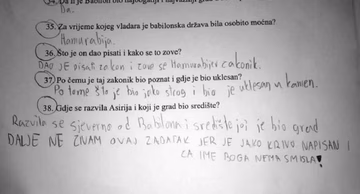 34. Da li je Babilon bio najbogatiji i najvažniji grad
Da.
35. Za vrijeme kojeg vladara je babilonska država bila osobito moćna?
Hamurabija.
36. Što je on dao pisati i kako se to zove?
DAO JE pisat zakon i zove se Hamurabijev zakonik.
37. Po čemu je taj zakonik bio poznat i gdje je bio uklesan?
Po tome što je bio jako strog i bio je uklesan u kamen.
38. Gdje se razvila Asirija i koji je grad bio središte?
Razvila se sjeverno od Babilona i središte joj je bio grad
DALJE NE ZNAM OVAJ ZADATAK JER JE JAKO KRIVO NAPISAN I
ZA IME BOGA NEMA SMISLA!